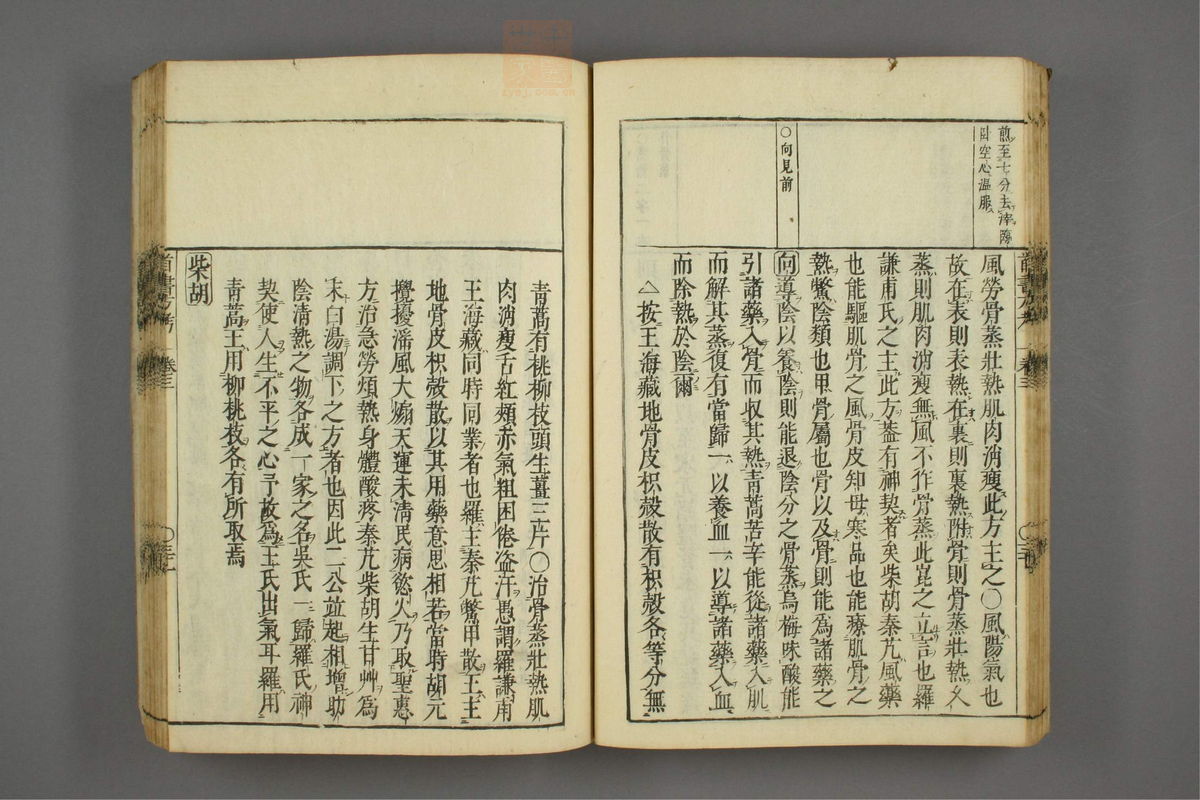 煎至七分去滓臨
臥空心溫服
○向見前
風勞骨蒸壯熱肌肉消瘦此方主之○風陽氣也
故在表則表熱在裏則裏熱附骨則骨蒸壯熱久
蒸則肌肉消瘦無風不作骨蒸此崑之立言也羅
謙甫氏之主此方蓋有神契者矣柴胡秦艽風藥
也能驅肌骨之風骨皮知母寒品也能療肌骨之
熱鱉陰類也甲骨屬也骨以及骨則能爲諸藥之
向導陰以養陰則能退陰分之骨蒸烏梅味酸能
引諸藥入骨而収其熱青蒿苦辛能從諸藥入肌
而解其蒸復有當歸一以養血一以導諸藥入血
而除熱於陰爾
△按王海藏地骨皮枳殼散有枳殼各等分無
青蒿有桃柳枝頭生薑三片○治骨蒸壯熱肌
肉消瘦舌紅頰赤氣粗困倦盗汗愚謂羅謙甫
王海藏同時同業者也羅主秦艽鱉甲散王主
地骨皮枳殼散以其用藥意思相若當時胡元
攪擾滛風大煽天運未清民病慾火乃取聖惠
方治急勞煩熱身體酸疼秦艽柴胡生甘艸爲
末白湯調下之方者也因此二公並起相增助
陰清熱之物各成一家之名吳氏一歸羅氏神
契使人生不平之心予故爲王氏出氣耳羅用
青蒿王用柳桃枝各有所取焉
柴胡
卷三
zysj.com.cn